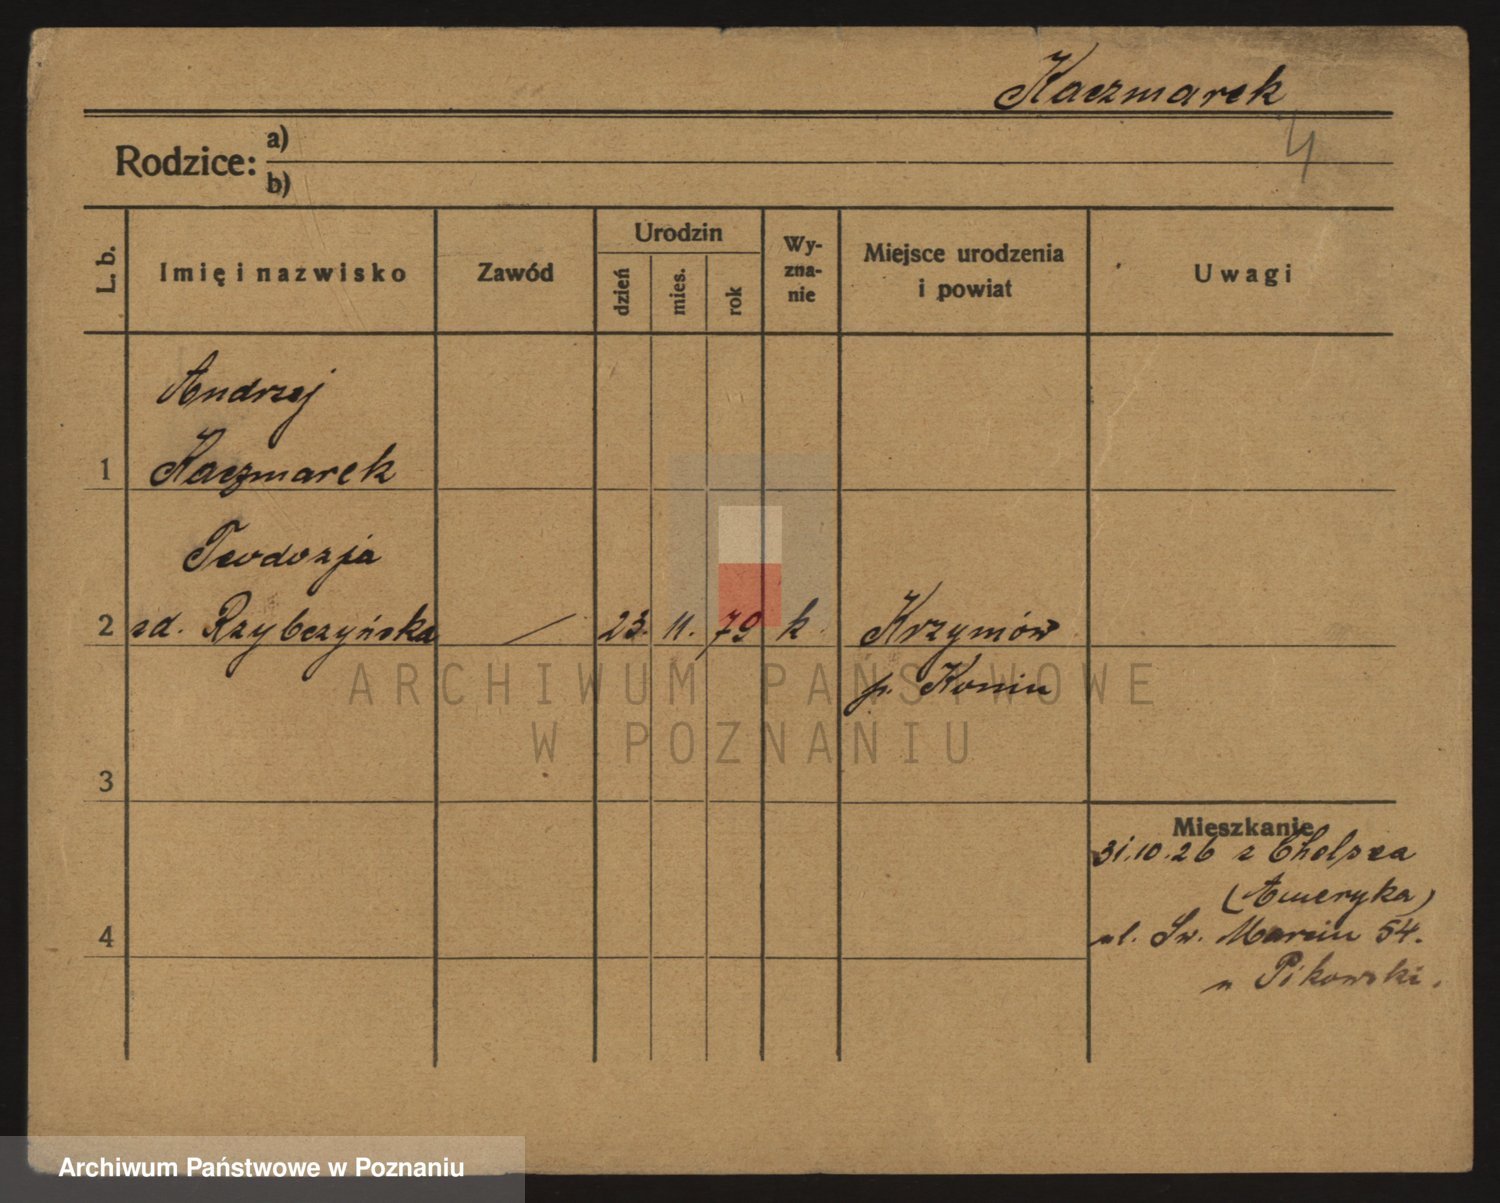 Kaczmarek
4
Rodzice:
a)
b)
L. b.
Imię i nazwisko
Zawód
Urodzin
dzień
mies.
rok
Wy-
zna-
nie
Miejsce urodzenia
i powiat
Uwagi
Andrzej
1 Kaczmarek
Teodozja
2 zd. Rzybczyńska — 23. 11. 79 k. Krzymów
p. Konin
ARCHIWUM PAŃSTWOWE
W POZNANIU
3
4
Mieszkanie
31.10.26 z Chelsea
(Ameryka)
ul. Św. Marcin 54.
u Pikowski.
Archiwum Państwowe w Poznaniu